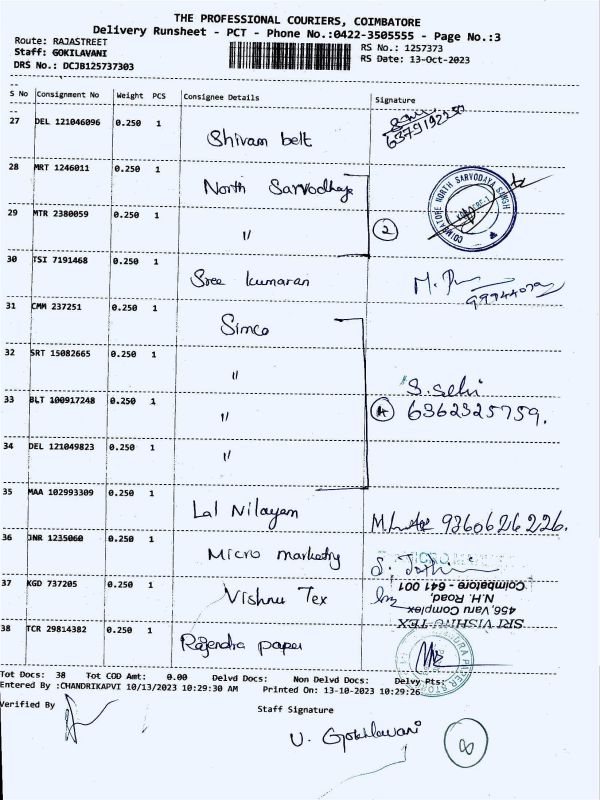 THE PROFESSIONAL COURIERS, COIMBATORE
Delivery Runsheet - PCT - Phone No.:0422-3505555 - Page No.:3
Route: RAJASTREET
Staff: GOKILAVANI
DRS No.: DCJB125737303
RS No.: 1257373
RS Date: 13-Oct-2023
S No Consignment No Weight PCS Consignee Details Signature
27 DEL 121046096 0.250 1 Shivam belt
6379192250
28 MRT 1246011 0.250 1 North Sarvodhaya
COIMBATORE NORTH SARVODAYA SANGH
29 MTR 2380059 0.250 1 〃 2
30 TSI 7191468 0.250 1 Sree kumaran M.
31 CMM 237251 0.250 1 Simco
32 SRT 15082665 0.250 1 〃
33 BLT 100917248 0.250 1 〃 4 S. Selvi
6362325759.
34 DEL 121049823 0.250 1 〃
35 MAA 102993309 0.250 1 Lal Nilayam 9360626226.
36 JNR 1235060 0.250 1 Micro marketry
37 KGD 737205 0.250 1 Vishnu Tex
SRI VISHNU-TEX
456, Vani Complex
N.H. Road,
Coimbatore - 641 001
38 TCR 29814382 0.250 1 Rajendra paper
Tot Docs: 38 Tot COD Amt: 0.00 Delvd Docs: Non Delvd Docs: Delvy Pts:
Entered By :CHANDRIKAPVI 10/13/2023 10:29:30 AM Printed On: 13-10-2023 10:29:26
Verified By
Staff Signature
U. Gokilavani 8